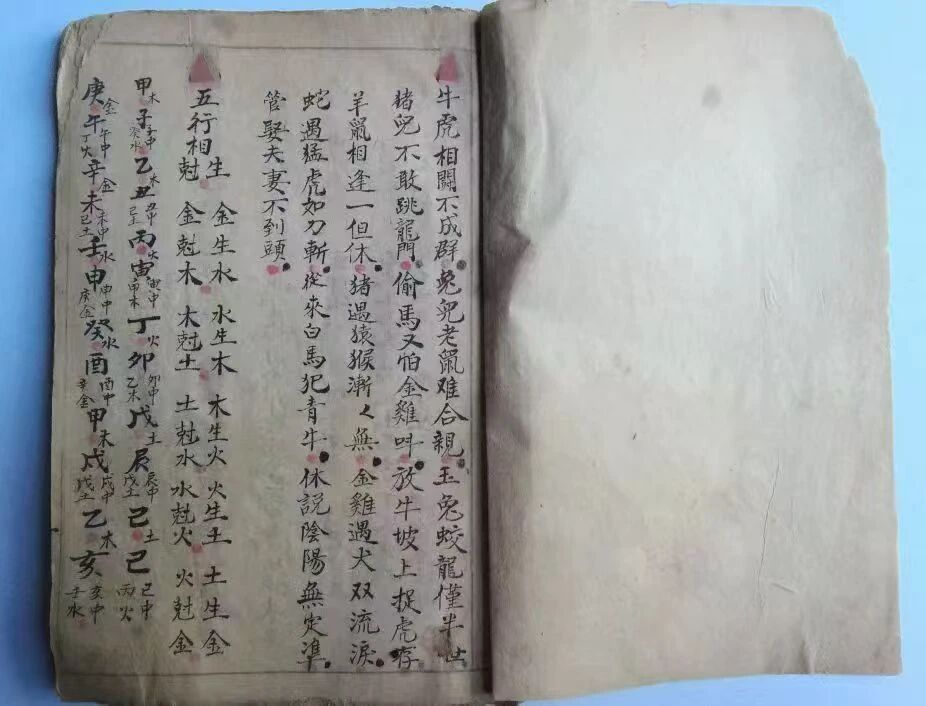 牛虎相鬪不成群兎兒老鼠难合親玉兎蛟龍僅半世
猪兒不敢跳龍門偷馬又怕金雞呌放牛坡上捉虎存
羊鼠相逢一但休猪遇猿猴漸々無金雞遇犬双流淚
蛇遇猛虎如刀斬從來白馬犯青牛休説陰陽無定凖
管娶夫妻不到頭
五行相生尅
金生水 水生木 木生火 火生土 土生金
金尅木 木尅土 土尅水 水尅火 火尅金
甲木子子中癸水乙木丑丑中己土丙火寅寅中甲木丁火卯卯中乙木戊土辰辰中戊土己土巳巳中丙火
庚金午午中丁火辛金未未中己土壬水申申中庚金癸水酉酉中辛金甲木戌戌中戊土乙木亥亥中壬水